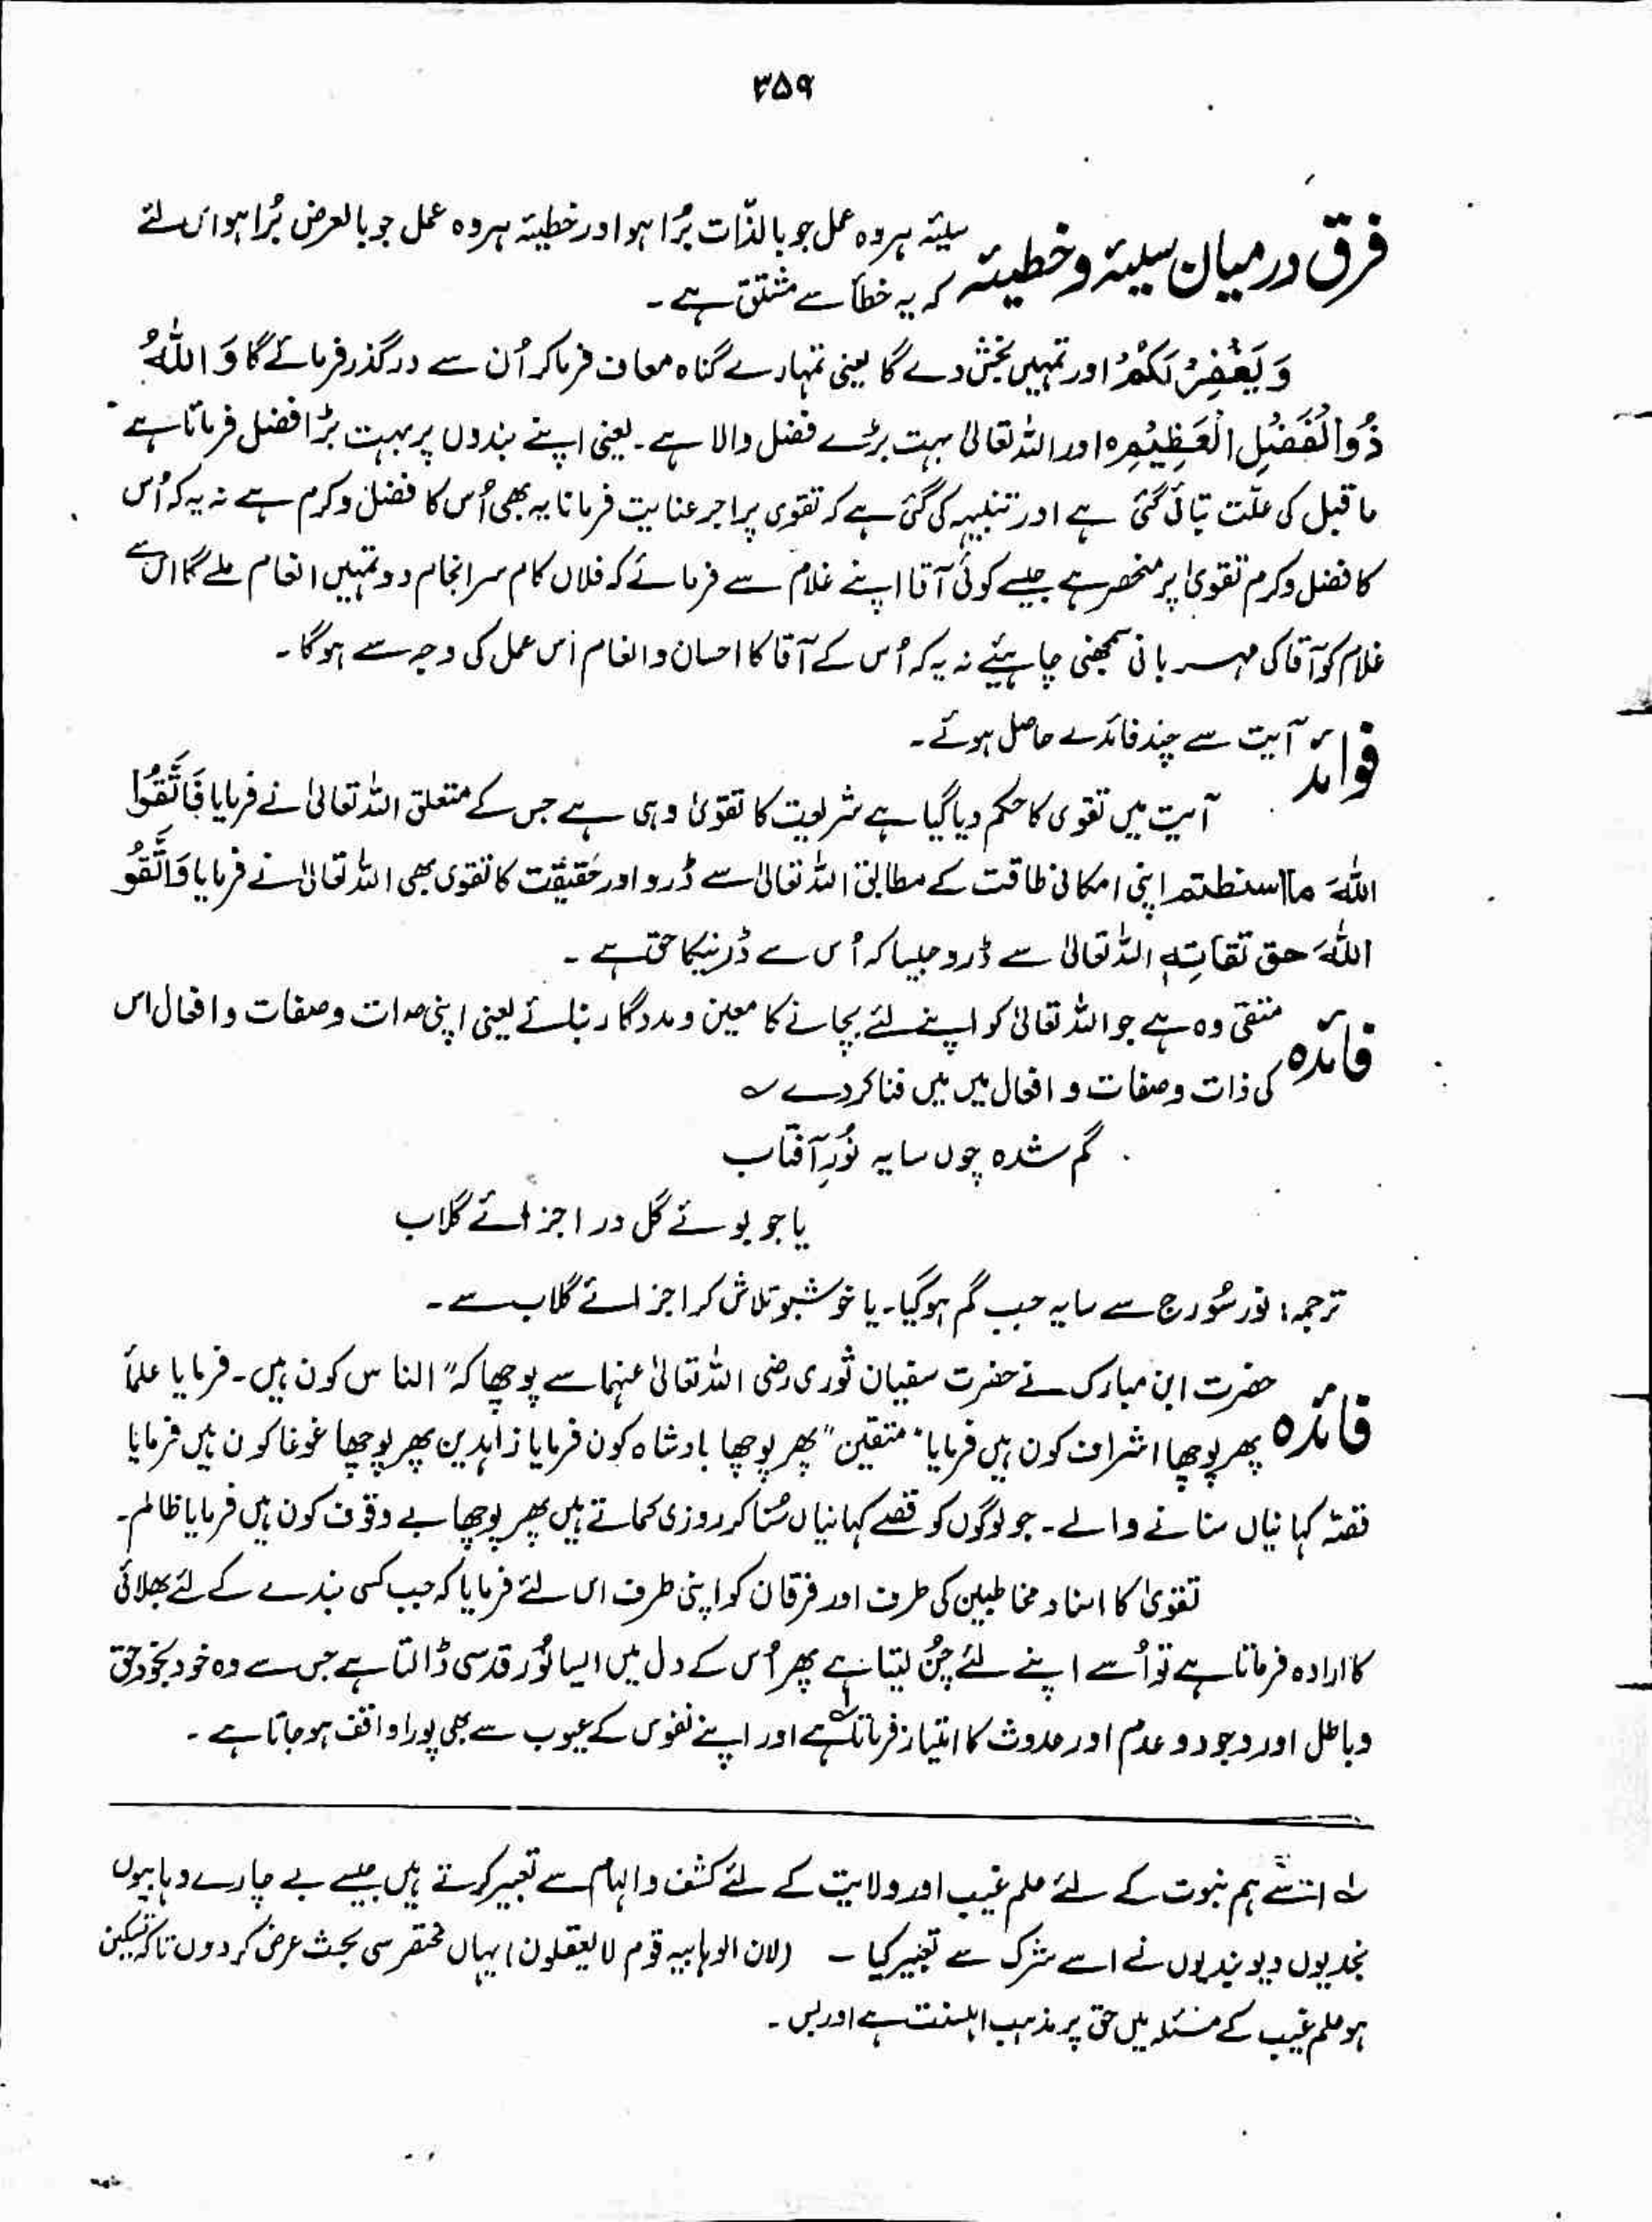 ۳۵۹
فرق درمیان سیئہ وخطیئہ سیئہ ہر وہ عمل جو بالذّات بُرا ہو اور خطیئہ ہر وہ عمل جو بالعرض بُرا ہو اس لئے
کہ یہ خطأ سے مشتق ہے ۔
وَیَغْفِرْ لَکُمْ اور تمہیں بخش دے گا یعنی تمہارے گناہ معاف فرما کر اُن سے درگذر فرمائے گا وَ اللّٰہُ
ذُو الْفَضْلِ الْعَظِیْمِ ہ اور اللہ تعالیٰ بہت بڑے فضل والا ہے ۔ یعنی اپنے بندوں پر بہت بڑا فضل فرماتا ہے
ما قبل کی علّت بتائی گئی ہے اور تنبیہہ کی گئی ہے کہ تقوی پر اجر عنایت فرمانا یہ بھی اُس کا فضل وکرم ہے نہ یہ کہ اُس
کا فضل وکرم تقویٰ پر منحصر ہے جیسے کوئی آقا اپنے غلام سے فرمائے کہ فلاں کام سرانجام دو تمہیں انعام ملے گا اس سے
غلام کو آقا کی مہربانی سمجھنی چاہیئے نہ یہ کہ اُس کے آقا کا احسان و انعام اُس عمل کی وجہ سے ہوگا ۔
فوائد آیت سے چند فائدے حاصل ہوئے ۔
آیت میں تقوی کا حکم دیا گیا ہے شریعت کا تقویٰ وہی ہے جس کے متعلق اللہ تعالیٰ نے فرمایا فَاتَّقُوا
اللّٰہَ مااستطتم اپنی امکانی طاقت کے مطابق اللہ تعالیٰ سے ڈرو اور حقیقت کا تقوی بھی اللہ تعالیٰ نے فرمایا وَاتَّقُو
اللّٰہَ حق تقاتِہٖ اللہ تعالیٰ سے ڈرو جیسا کہ اُس سے ڈرنیکا حق ہے ۔
فائدہ متقی وہ ہے جو اللہ تعالیٰ کو اپنے لئے بچانے کا معین و مددگار بنائے یعنی اپنی ذات وصفات و افعال اس
کی ذات وصفات و افعال میں میں فنا کردے ؎
گم شدہ چوں سایہ نُورِ آفتاب
یا جو بوئے گل در اجزائے گلاب
ترجمہ : نور سُورج سے سایہ جب گم ہوگیا ۔ یا خوشبو تلاش کر اجزائے گلاب سے ۔
فائدہ حضرت ابن مبارک نے حضرت سفیان ثوری رضی اللہ تعالیٰ عنہما سے پوچھا کہ ” الناس کون ہیں ۔ فرمایا علمأ
پھر پوچھا اشراف کون ہیں فرمایا ” متقین “ پھر پوچھا بادشاہ کون فرمایا زاہدین پھر پوچھا غوغا کون ہیں فرمایا
قصّہ کہانیاں سنانے والے ۔ جو لوگوں کو قصے کہانیاں سُنا کر روزی کماتے ہیں پھر پوچھا بے وقوف کون ہیں فرمایا ظالم ۔
تقویٰ کا اسناد مخاطبین کی طرف اور فرقان کو اپنی طرف اس لئے فرمایا کہ جب کسی بندے کے لئے بھلائی
کا ارادہ فرماتا ہے تو اُسے اپنے لئے چُن لیتا ہے پھر اُس کے دل میں ایسا نُور قدسی ڈالتا ہے جس سے وہ خود بخود حق
وباطل اور وجود و عدم اور حدوث کا امتیاز فرماتا ہے اور اپنے نفوس کے عیوب سے بھی پورا واقف ہو جاتا ہے ۔
لہ اسے ہم نبوت کے لئے علم غیب اور ولایت کے لئے کشف و الہام سے تعبیر کرتے ہیں جیسے بے چارے وہابیوں
نجدیوں دیوبندیوں نے اسے شرک سے تعبیر کیا ۔ (لان الوہابیہ قوم لا یعقلون) یہاں مختصر سی بحث عرض کردوں تاکہ تسکین
ہو علم غیب کے مسئلہ میں حق پر مذہب اہلسنت ہے اور بس ۔